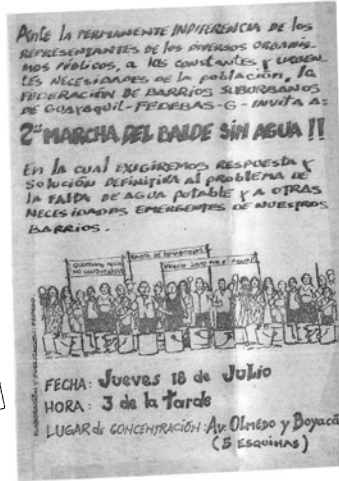 Ante la PERMANENTE INDIFERENCIA de los
REPRESENTANTES de los diversos ORGANIS-
MOS PÚBLICOS, a las constantes y URGEN-
TES NECESIDADES de la población, la
FEDERACIÓN DE BARRIOS SUBURBANOS
DE GUAYAQUIL-FEDEBAS-G-INVITA A:
2da MARCHA DEL BALDE SIN AGUA !!
En la cual EXIGIREMOS RESPUESTA Y
Solución DEFINITIVA al problema de
la FALTA DE AGUA potable y A OTRAS
NECESIDADES EMERGENTES DE NUESTROS
BARRIOS.
QUEREMOS AGUA
BASTA DE
PRECIO JUSTO POR EL AGUA
FECHA: Jueves 18 de Julio
HORA: 3 de la tarde
LUGAR de CONCENTRACIÓN: Av. Olmedo y Boyacá
(5 ESQUINAS)